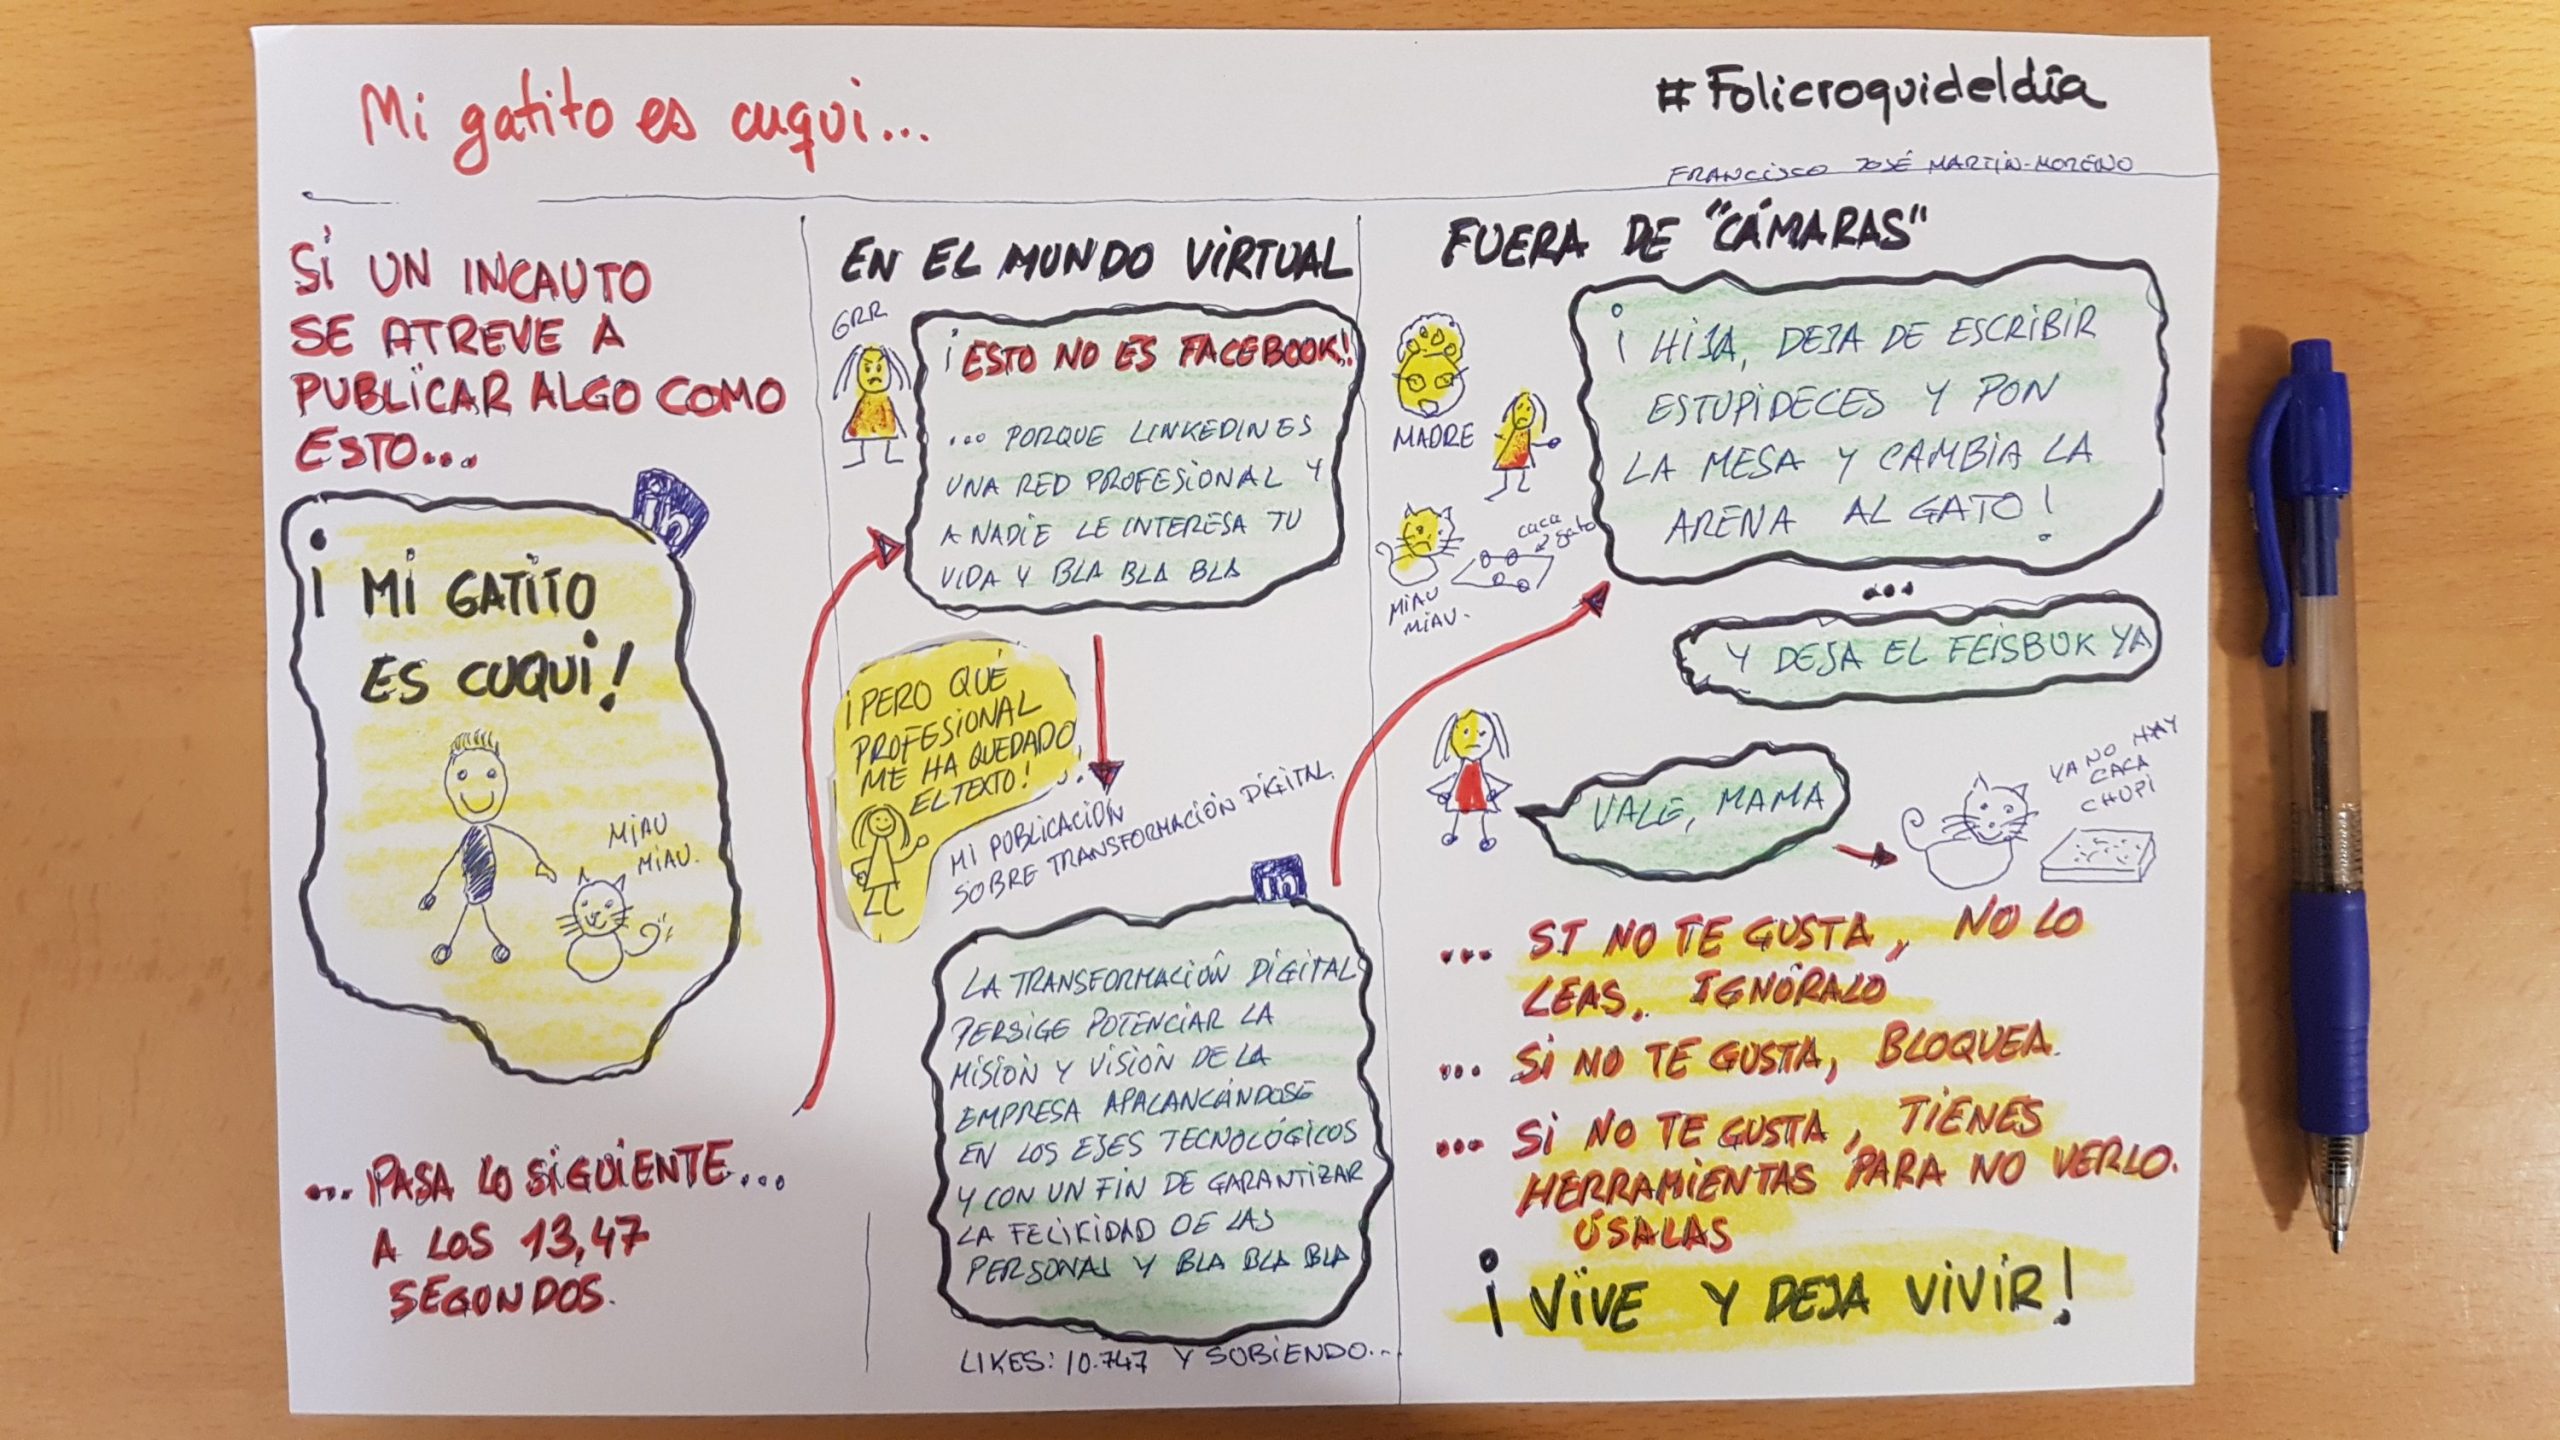 Mi gatito es cuqui...
#Folicroquideldía
FRANCISCO JOSÉ MARTIN-MORENO
SI UN INCAUTO
SE ATREVE A
PUBLICAR ALGO COMO
ESTO...
in
¡ MI GATITO
ES CUQUI!
MIAU
MIAU.
... PASA LO SIGUIENTE...
A LOS 13,47
SEGONDOS.
EN EL MUNDO VIRTUAL
GRR
¡ESTO NO ES FACEBOOK!
... PORQUE LINKEDIN ES
UNA RED PROFESIONAL Y
A NADIE LE INTERESA TU
VIDA Y BLA BLA BLA
¡PERO QUÉ
PROFESIONAL
ME HA QUEDADO,
EL TEXTO!
MI PUBLICACIÓN
SOBRE TRANSFORMACIÓN DIGITAL.
in
LA TRANSFORMACIÓN DIGITAL
PERSIGE POTENCIAR LA
MISIÓN Y VISIÓN DE LA
EMPRESA APALANCÁNDOSE
EN LOS EJES TECNOLÓGICOS
Y CON UN FIN DE GARANTIZAR
LA FELIKIDAD DE LAS
PERSONAS Y BLA BLA BLA
LIKES: 10.747 Y SUBIENDO...
FUERA DE "CÁMARAS"
MADRE
¡ HIJA, DEJA DE ESCRIBIR
ESTUPIDECES Y PON
LA MESA Y CAMBIA LA
ARENA AL GATO!
caca
gato
MIAU
MIAU.
...
Y DEJA EL FEISBUK YA
VALE, MAMA
YA NO HAY
CACA
CHUPI
... SI NO TE GUSTA, NO LO
LEAS. IGNÓRALO
... SI NO TE GUSTA, BLOQUEA.
... SI NO TE GUSTA, TIENES
HERRAMIENTAS PARA NO VERLO.
ÚSALAS
¡ VIVE Y DEJA VIVIR!